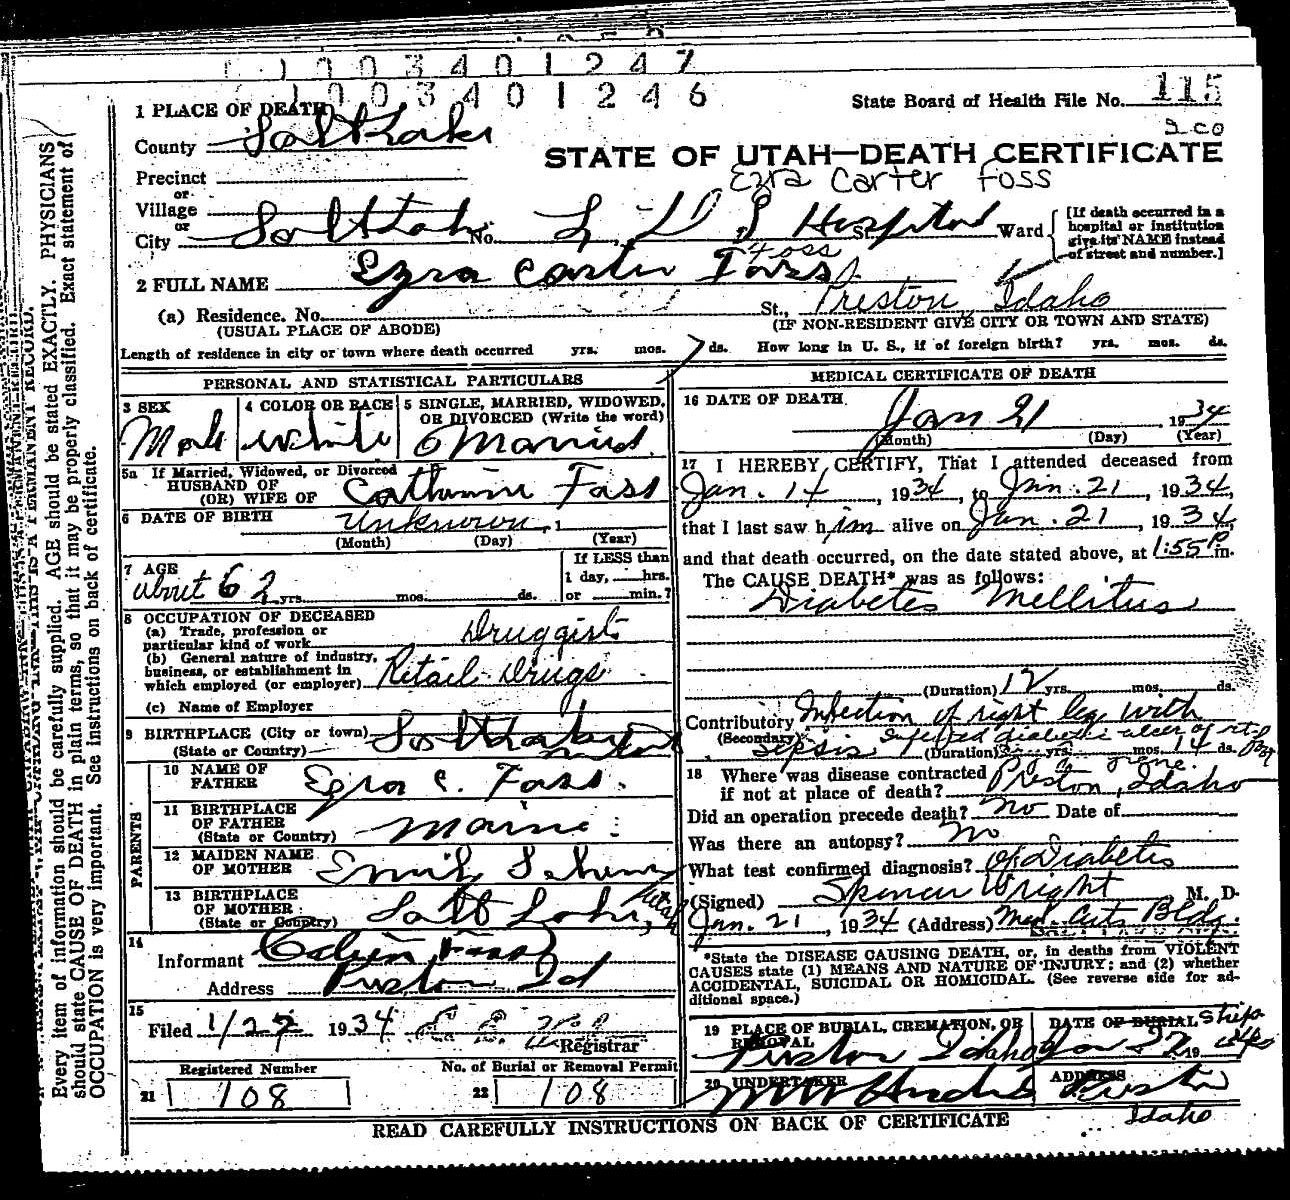 1003401247
1003401246
State Board of Health File No. 115
1 PLACE OF DEATH
County Salt Lake
STATE OF UTAH—DEATH CERTIFICATE
Ezra Carter Foss
Precinct
or
Village
or
City Salt Lake No. L. D. S Hospital St. Ward
[If death occurred in a
hospital or institution
give its NAME instead
of street and number.]
Foss
2 FULL NAME Ezra Carter Foss
(a) Residence. No. St., Preston, Idaho
(USUAL PLACE OF ABODE) (IF NON-RESIDENT GIVE CITY OR TOWN AND STATE)
Length of residence in city or town where death occurred yrs. mos. 7 ds. How long in U. S., if of foreign birth? yrs. mos. ds.
PERSONAL AND STATISTICAL PARTICULARS
3 SEX Male
4 COLOR OR RACE White
5 SINGLE, MARRIED, WIDOWED,
OR DIVORCED (Write the word)
Married
5a If Married, Widowed, or Divorced
HUSBAND OF
(OR) WIFE OF Catherine Foss
6 DATE OF BIRTH Unknown, 1
(Month) (Day) (Year)
7 AGE
about 62 yrs. mos. ds.
If LESS than
1 day, hrs.
or min.?
8 OCCUPATION OF DECEASED
(a) Trade, profession or
particular kind of work Druggist
(b) General nature of industry,
business, or establishment in
which employed (or employer) Retail Drugs
(c) Name of Employer
9 BIRTHPLACE (City or town) Salt Lake
(State or Country)
PARENTS
10 NAME OF
FATHER Ezra C. Foss
11 BIRTHPLACE
OF FATHER
(State or Country) Maine
12 MAIDEN NAME
OF MOTHER Emily
13 BIRTHPLACE
OF MOTHER
(State or Country) Salt Lake, Utah
14
Informant Calvin Foss
Address Preston Id
15
Filed 1/27 1934
Registrar
Registered Number No. of Burial or Removal Permit
21 108 22 108
MEDICAL CERTIFICATE OF DEATH
16 DATE OF DEATH
Jan 21, 1934
(Month) (Day) (Year)
17 I HEREBY CERTIFY, That I attended deceased from
Jan. 14, 1934, to Jan. 21, 1934,
that I last saw him alive on Jan. 21, 1934,
and that death occurred, on the date stated above, at 1:55 P m.
The CAUSE DEATH* was as follows:
Diabetes Mellitus
(Duration) 12 yrs. mos. ds.
Contributory Infection of right leg with
(Secondary) Sepsis Infected diabetic ulcer of rt.
(Duration) yrs. mos. 14 ds.
18 Where was disease contracted
if not at place of death? Preston, Idaho
Did an operation precede death? No Date of
Was there an autopsy? No
What test confirmed diagnosis? Of Diabetes
(Signed) Spencer Wright M. D.
Jan. 21, 1934 (Address) Med. Arts Bldg.
*State the DISEASE CAUSING DEATH, or, in deaths from VIOLENT
CAUSES state (1) MEANS AND NATURE OF INJURY; and (2) whether
ACCIDENTAL, SUICIDAL OR HOMICIDAL. (See reverse side for ad-
ditional space.)
19 PLACE OF BURIAL, CREMATION, OR
REMOVAL
Preston Idaho
DATE OF BURIAL Ship
Jan 22 19
20 UNDERTAKER
ADDRESS
Preston
Idaho
READ CAREFULLY INSTRUCTIONS ON BACK OF CERTIFICATE
Every item of information should be carefully supplied. AGE should be stated EXACTLY. PHYSICIANS
should state CAUSE OF DEATH in plain terms, so that it may be properly classified. Exact statement of
OCCUPATION is very important. See instructions on back of certificate.